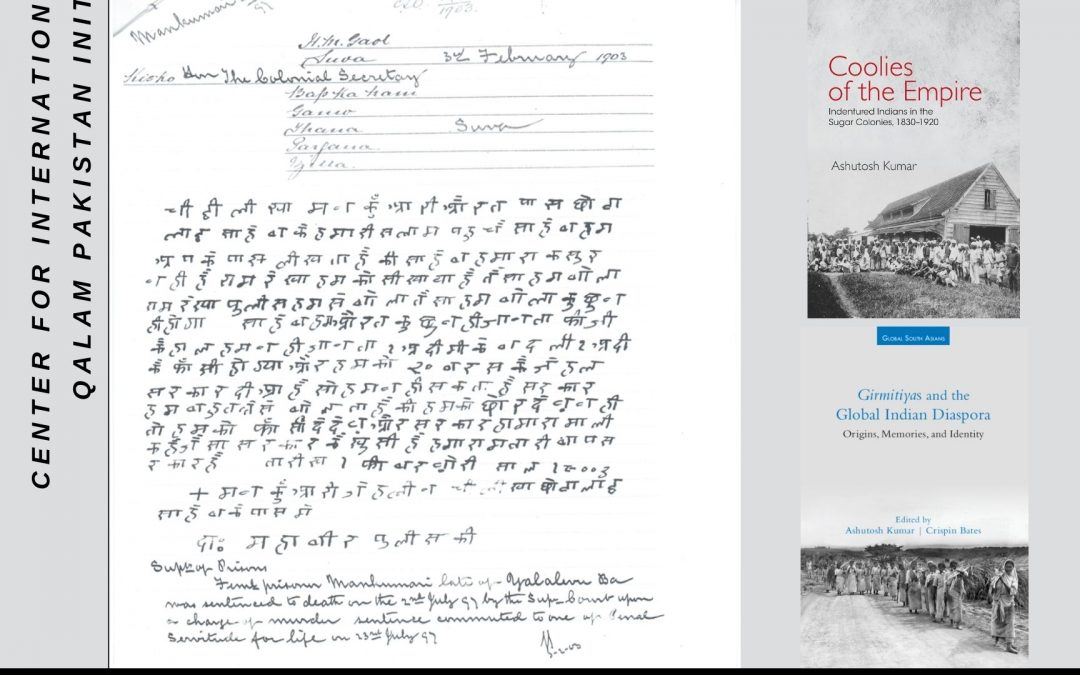 CENTER FOR INTERNATION
QALAM PAKISTAN INIT
Mankumari
1903.
H.M. Gaol
Suva 3rd February 1903
The Colonial Secretary
Bap ka nam
Gaow
Thana Suva
Pargana
Zilla
ची ठी ली खा म न कुँ आ री औ र त पा स छो टा
ला ट सा हे ब के ह मा री स ला म प हु चै सा हे ब ह म
आ प के पा स ली ख ता है की सा हे ब ह मा रा क सु र
न ही है रा म रे खा ह म को सी खा या है तै सा ह म बो ला
रा म रे खा पु ली स ह म से बो ला तै सा ह म बो ला कु छ न
ही हो गा सा हे ब ह म औ र त कु छ न ही जा न ता फी जी
के हा ल ह म न ही जा न ता
औ र ह म को २० ब र स के जे ह ल
स र का र दी आ है सो ह म न ही स क ता है स र का र
की ह म को छो र दे
तो ह म को फाँ सी दे दे औ र स र का र ह मा रा मा ली
क है स र का र के खु सी है ह मा रा म ता री बा प स
र का र है ता री ख १ सा ल
+ म न कुँ आ री जे ह ली न ची ठी ली खा छो टा ला ट
सा हे ब के पा स मे
दाः म हा बी र पु ली स की
Supt of Prisons
prisoner Mankumari late of Yalalevu Ba
was sentenced to death on the 2nd July 97 by the Sup Court upon
a charge of murder sentence commuted to one of Penal
Servitude for life on 23rd July 97
Coolies
of the Empire
Indentured Indians in the
Sugar Colonies, 1830–1920
Ashutosh Kumar
GLOBAL SOUTH ASIANS
Girmitiyas and the
Global Indian Diaspora
Origins, Memories, and Identity
Edited by
Ashutosh Kumar | Crispin Bates